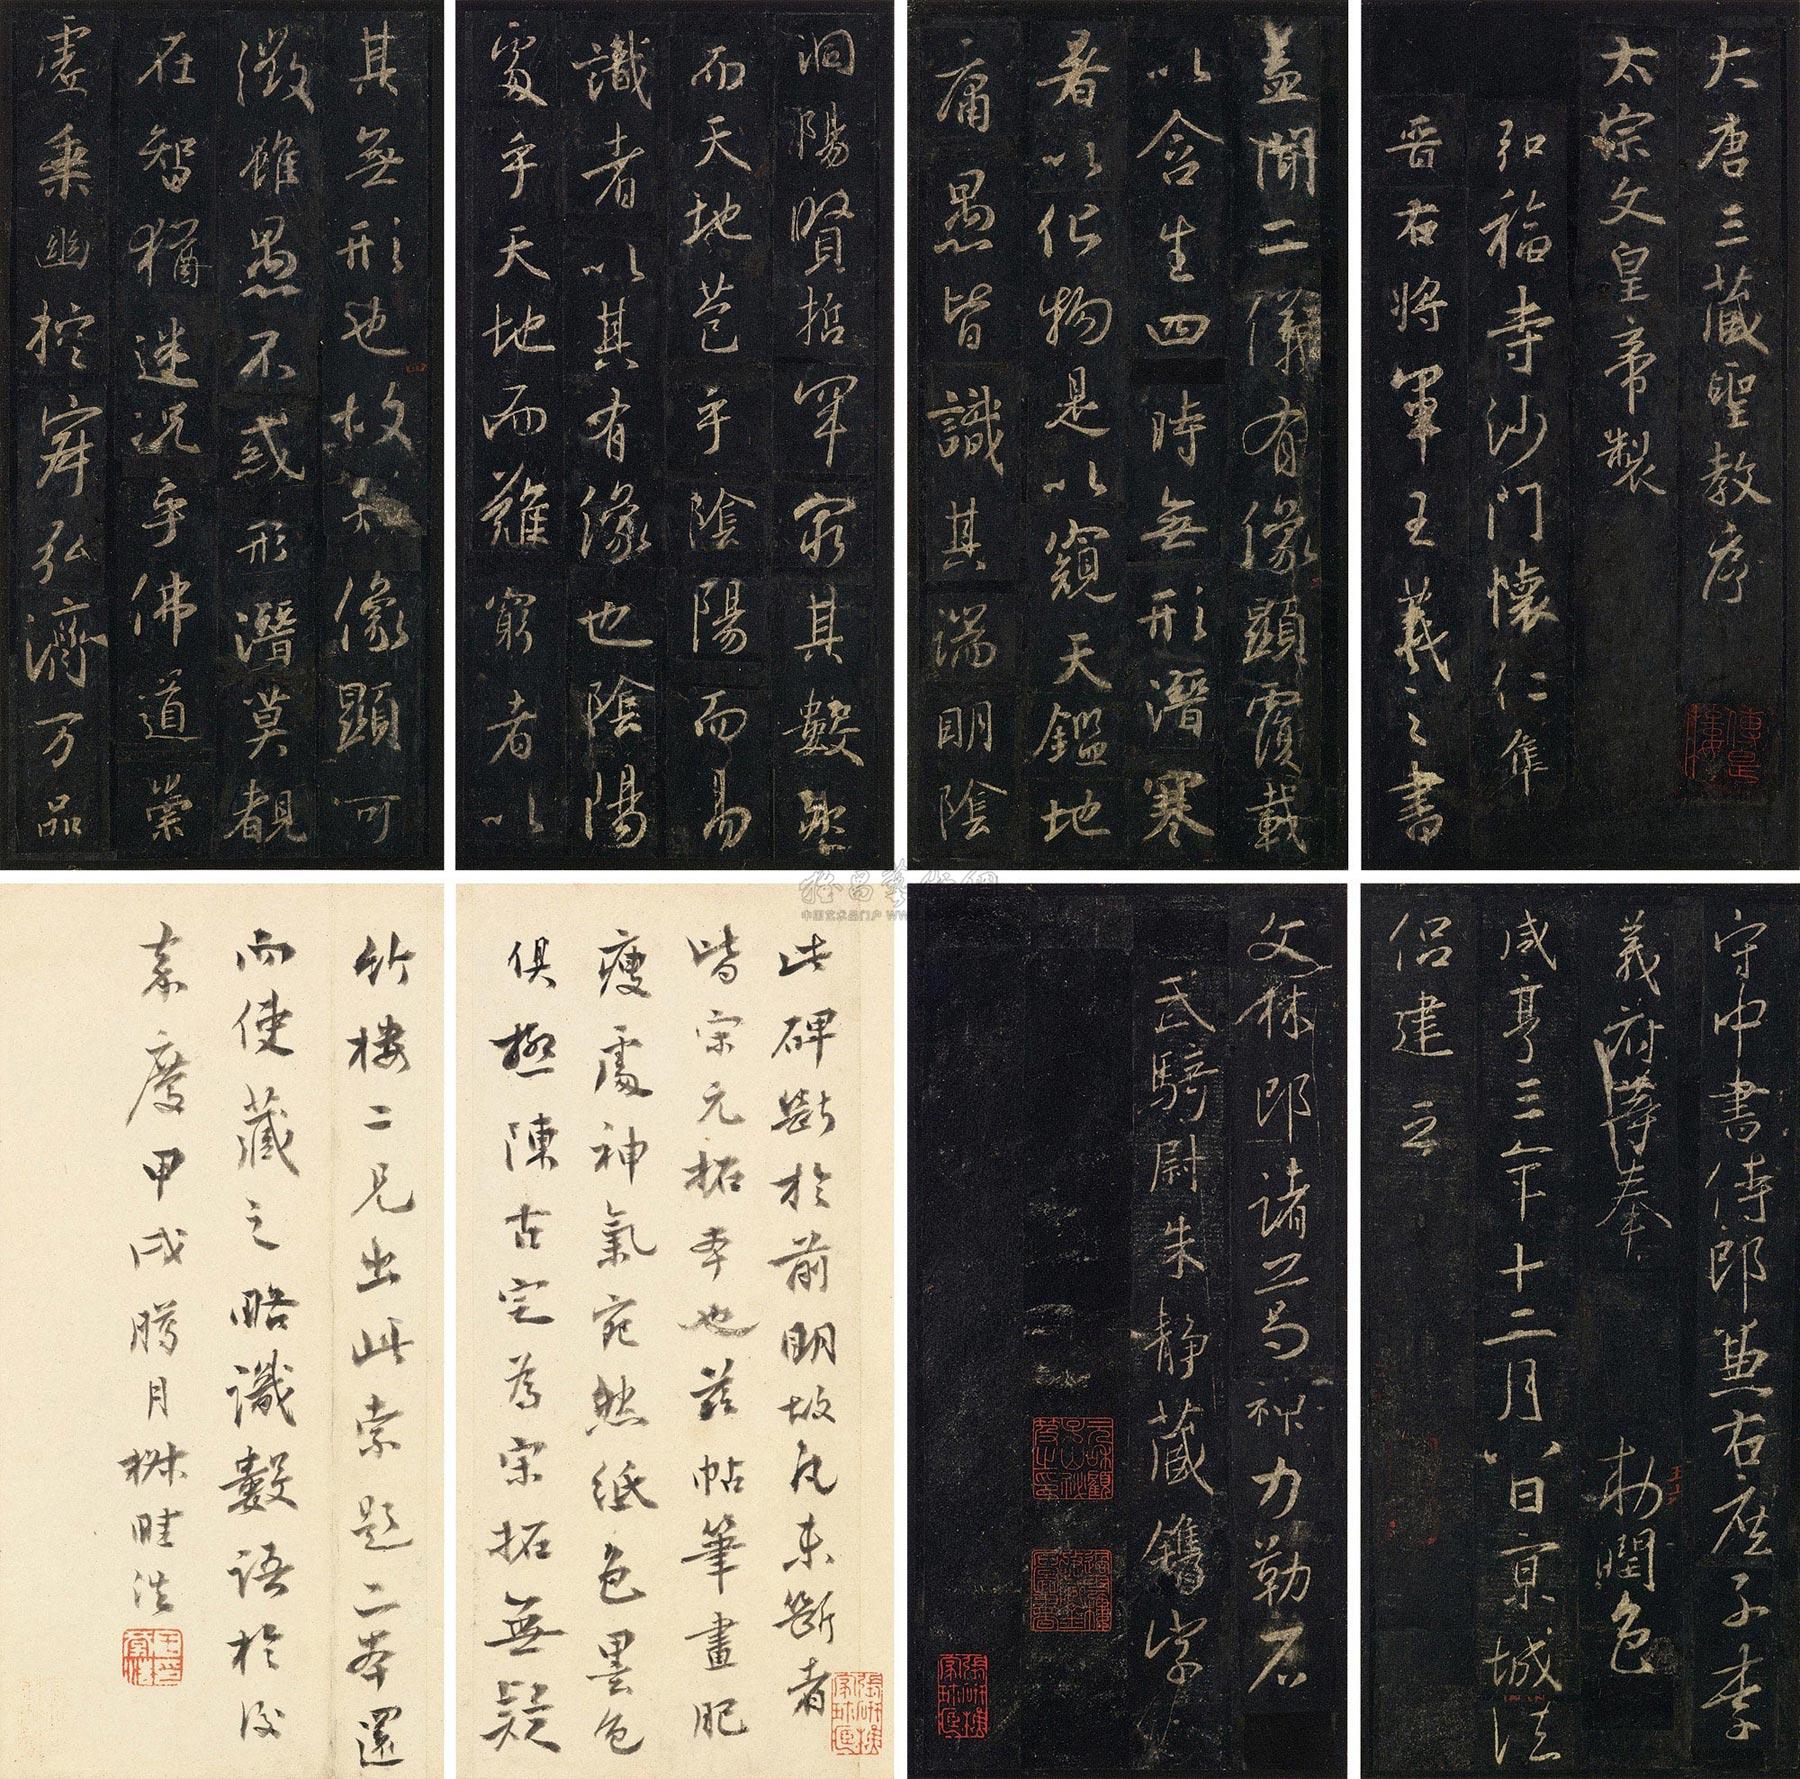 大唐三藏聖教序
太宗文皇帝製
弘福寺沙門懷仁集
晉右將軍王羲之書
蓋聞二儀有像顯覆載
以含生四時無形潛寒
暑以化物是以窺天鑑地
庸愚皆識其端明陰
洞陽賢哲罕窮其數然
而天地苞乎陰陽而易
識者以其有像也陰陽
處乎天地而難窮者以
其無形也故知像顯可
徵雖愚不惑形潛莫覩
在智猶迷況乎佛道崇
虛乘幽控寂弘濟万品
守中書侍郎兼右庶子李
義府等奉 勅潤色
咸亨三年十二月八日京城法
侶建立
文林郎諸葛神力勒石
武騎尉朱靜藏鐫字
此碑斷於前明故凡未斷者
皆宋元拓本也茲帖筆畫肥
瘦處神氣宛然紙色墨色
俱極陳古定為宋拓無疑
竹樓二兄出此索題二本還
而使藏之略識數語於後
嘉慶甲戌臈月楙畦法